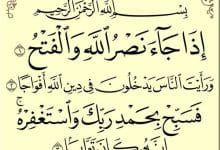 بِسْمِ ٱللَّهِ ٱلرَّحْمَٰنِ ٱلرَّحِيمِ
إِذَا جَآءَ نَصْرُ ٱللَّهِ وَٱلْفَتْحُ ١
وَرَأَيْتَ ٱلنَّاسَ يَدْخُلُونَ فِى دِينِ ٱللَّهِ أَفْوَاجًا ٢
فَسَبِّحْ بِحَمْدِ رَبِّكَ وَٱسْتَغْفِرْهُ ۚ
إِنَّهُۥ كَانَ تَوَّابًۢا